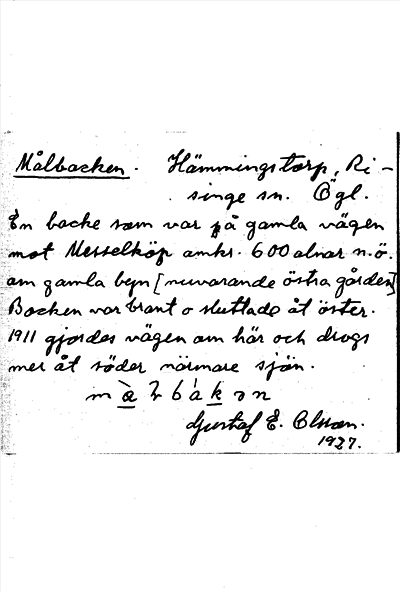 Målbacken. Hämmingstorp, Ri-
singe sn. Ögl.
En backe som var på gamla vägen
mot Messelköp omkr. 600 alnar n.ö.
om gamla byn [nuvarande östra gården]
Backen var brant o sluttade åt öster.
1911 gjordes vägen om här och drogs
mer åt söder närmare sjön.
Gustaf E. Olsson.
1927.